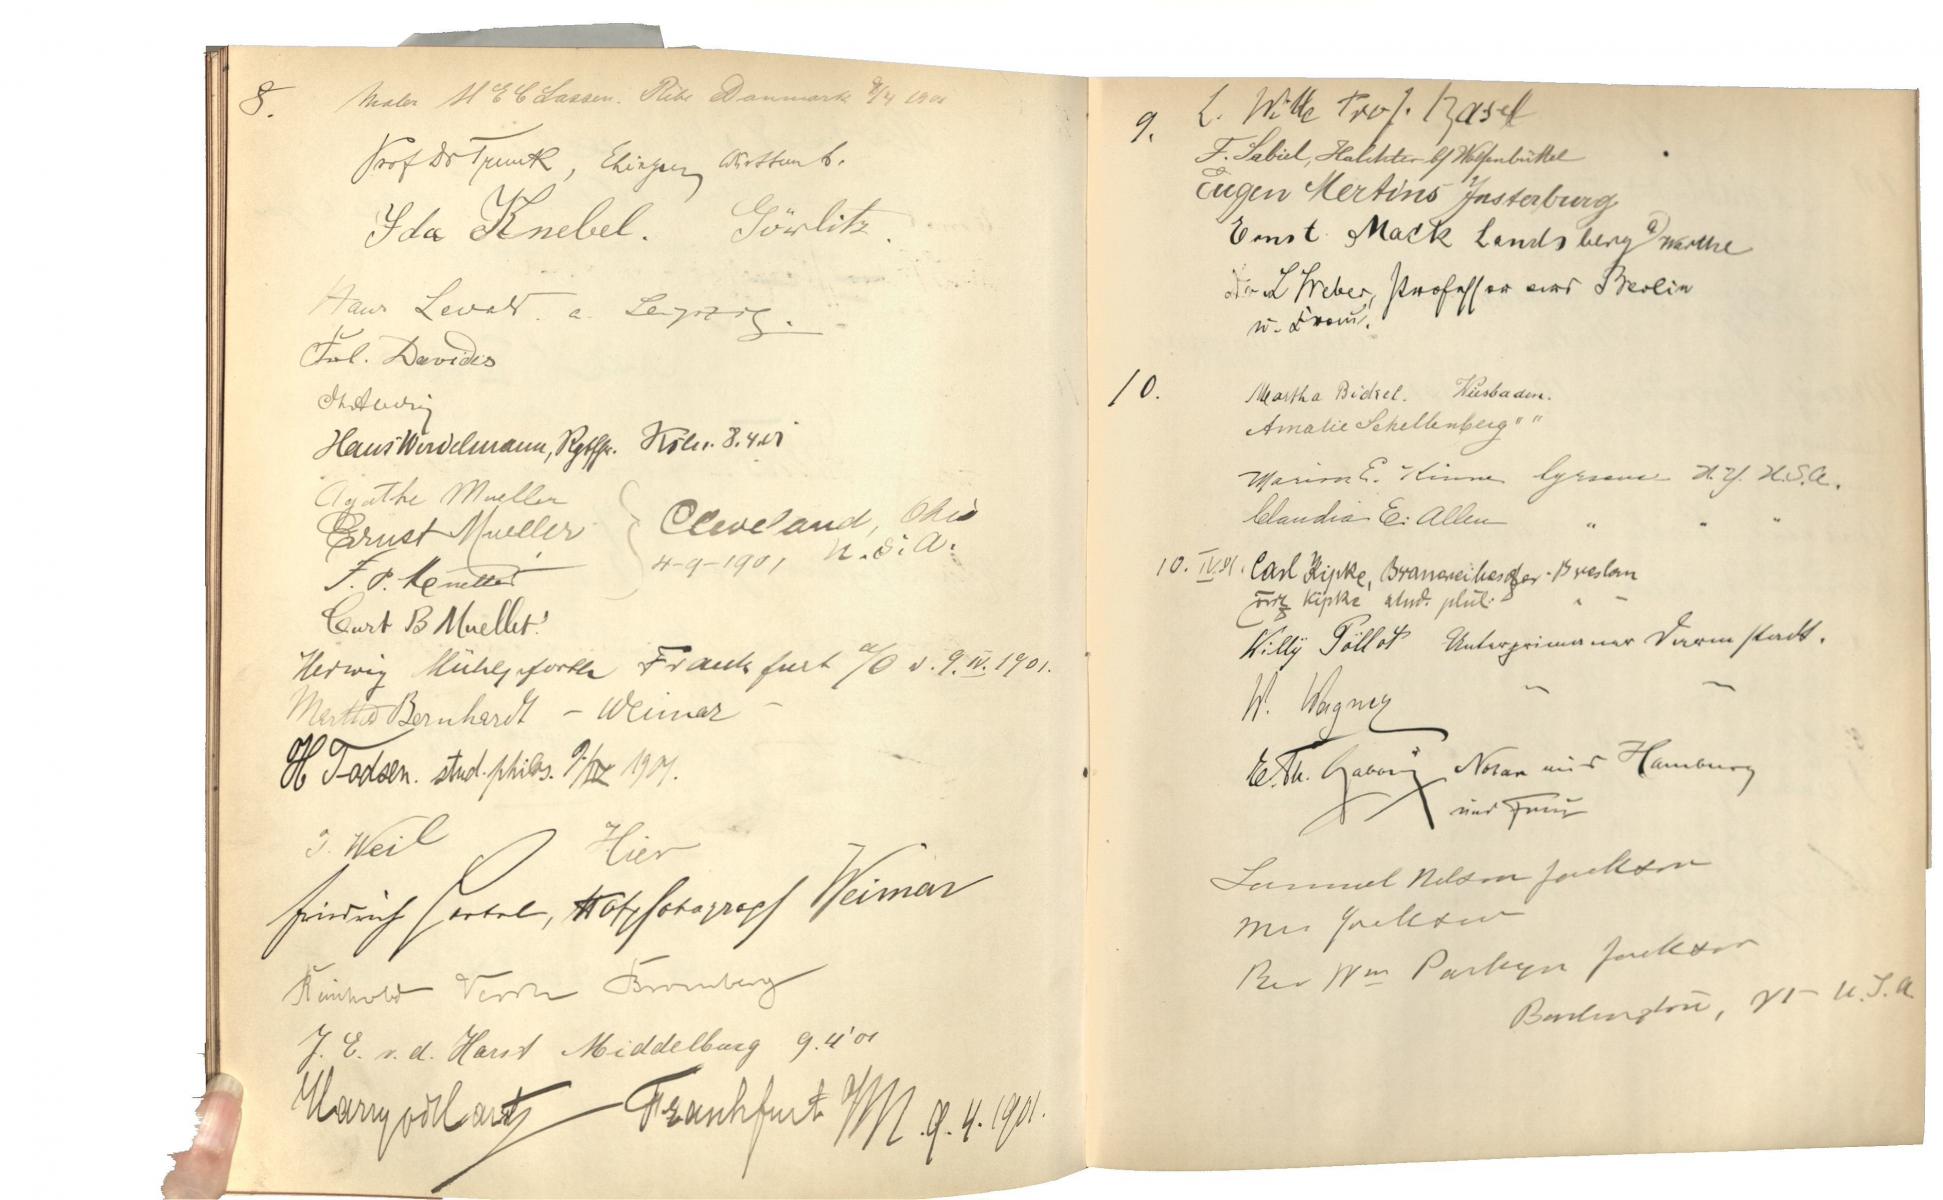 8.
Maler M E C Lassen. Ribe Danmark 8/4 1901
Prof Dr Trunk, Ehingen Württemb.
Ida Knebel. Görlitz.
Hans a. Leipzig.
Davidis
Hans Windelmann, Köln. 8.4.01
Agathe Mueller
Ernst Mueller Cleveland, Ohio
F. P. Mueller 4-9-1901 U.S.A.
Curt B Mueller
Herwig Frankfurt a/O d. 9.IV.1901.
Martha Bernhardt – Weimar –
H Todsen. stud. philos. 9/IV 1901.
J. Weil Hier
Friedrich Hertel, Hofphotograph Weimar
Reinhold Bromberg
J. E. v. d. Harst Middelburg 9.4'01
Harry Frankfurt a/M 9.4.1901.
9.
L. Wille Prof. Basel
F. Sabiel, Halchter b/ Wolfenbüttel
Eugen Mertins Insterburg
Ernst Mack Landsberg a/Warthe
L Weber, Professor aus Berlin
u. Frau.
10.
Martha Bickel. Wiesbaden.
Amalie Schellenberg " "
Marion E. Kinne Syracuse N.Y. U.S.A.
Claudia E. Allen " " "
10.IV.01. Carl Kipke, Brauereibesitzer - Breslau
Kipke stud. phil. " "
Willy Pöllot Unterprimaner Darmstadt.
W. Wagner " "
E. Th. Notar aus Hamburg
und Frau
Samuel Nelson Jackson
Mrs Jackson
Rev Wm Parkyn Jackson
Burlington, Vt – U.S.A.